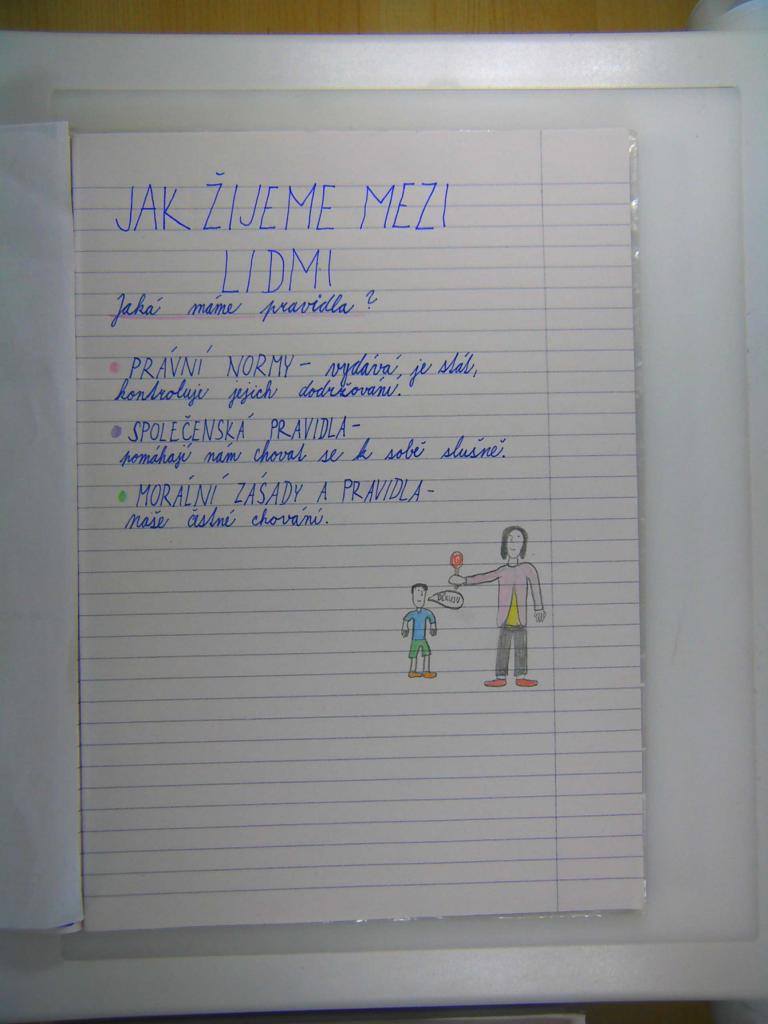 JAK ŽIJEME MEZI
LIDMI
Jaká máme pravidla?
PRÁVNÍ NORMY - vydává, je stát,
kontroluje jejich dodržování.
SPOLEČENSKÁ PRAVIDLA -
pomáhají nám chovat se k sobě slušně.
MORÁLNÍ ZÁSADY A PRAVIDLA -
naše čestné chování.
DĚKUJU